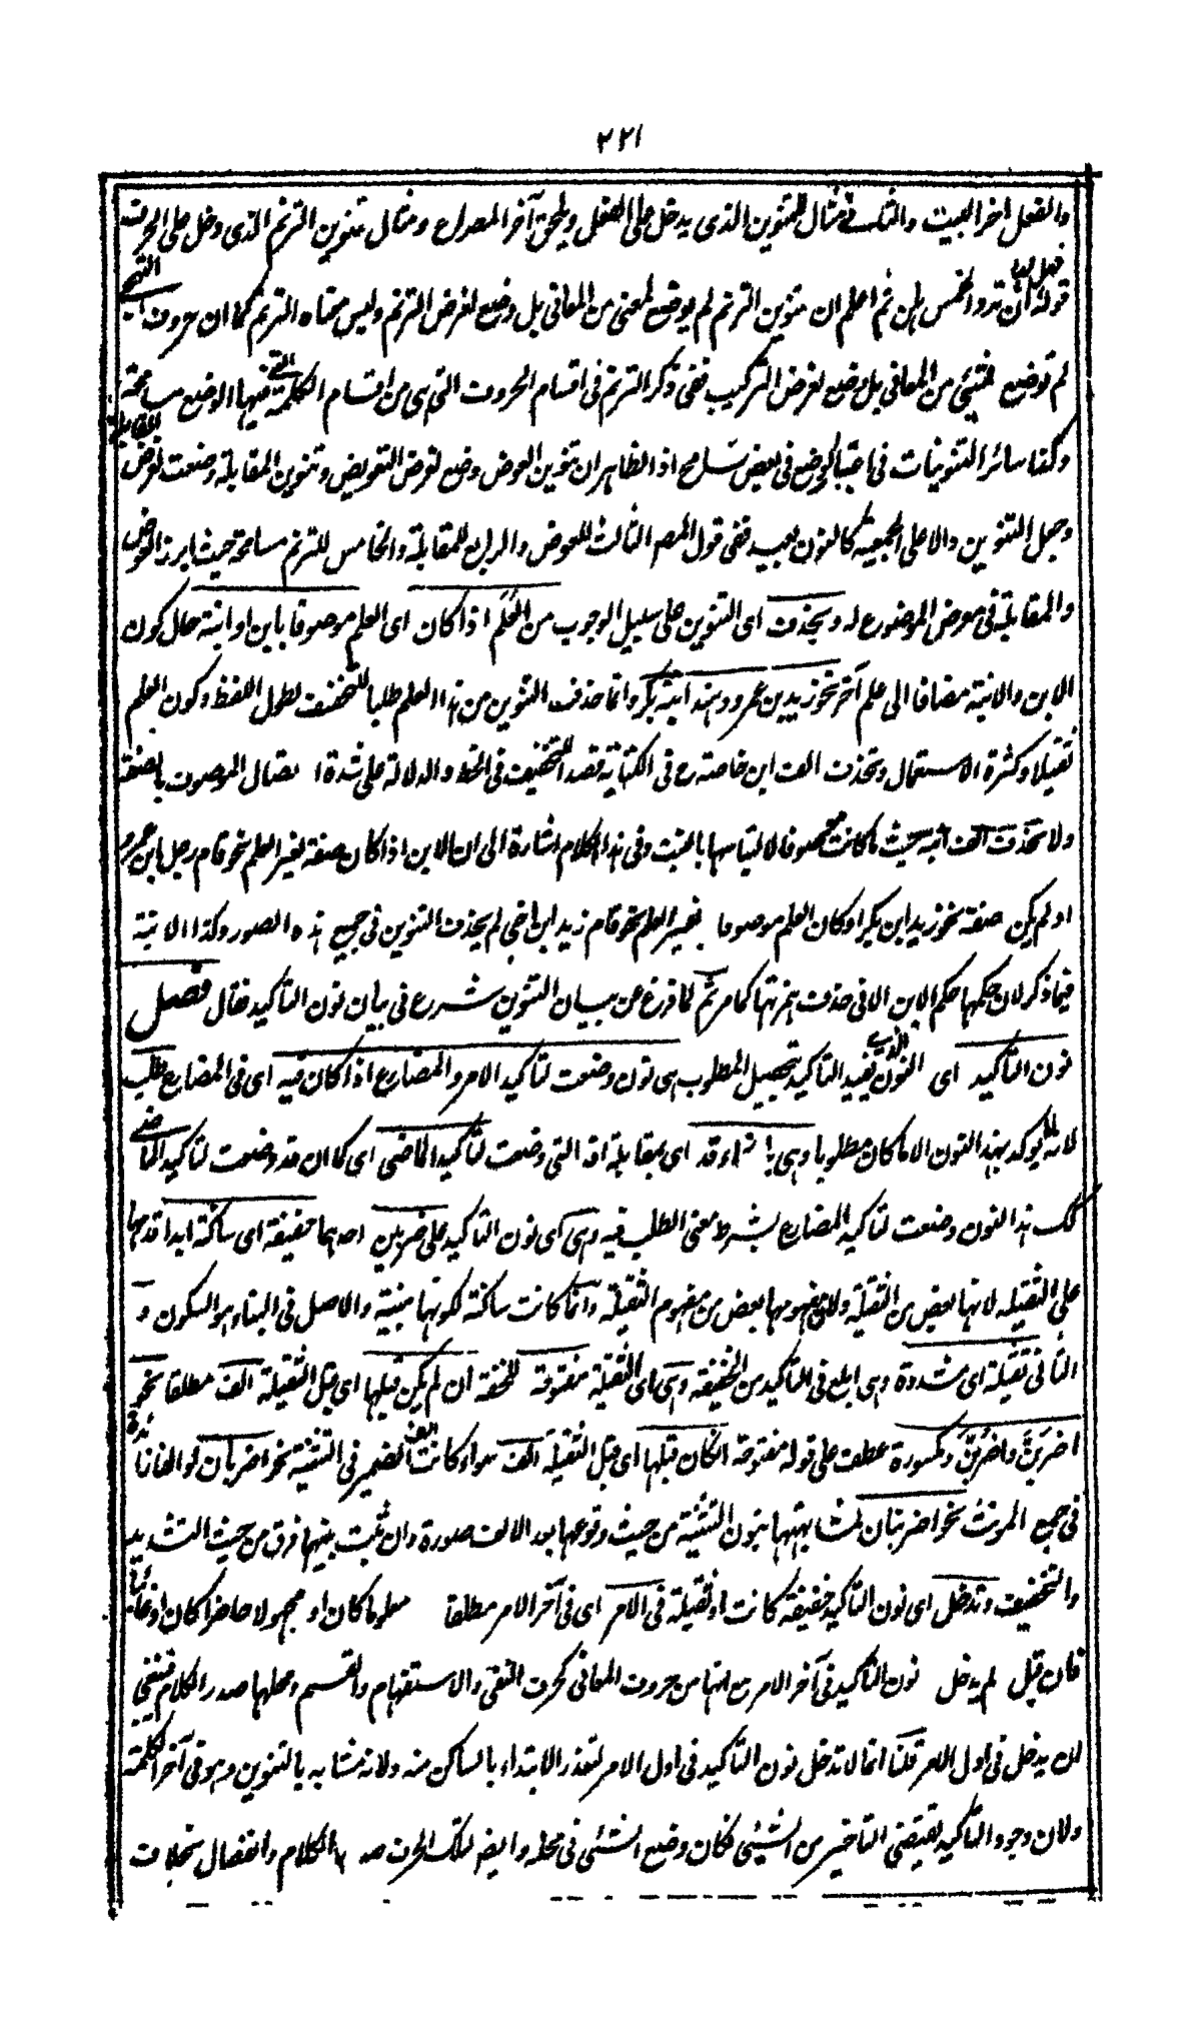 ٢٢١
والفعل اخر البيت والثالث في مثال التنوين الذى يدخل على الفعل ويلحق آخر المصراع ومثال تنوين الترنم الذى دخل على الحرف
قوله ثم اعلم ان تنوين الترنم لم يوضع لمعنى من المعانى بل وضع لغرض الترنم وليس معناه الترنم كما ان حروف التهجى
لم توضع لشئ من المعانى بل وضع لغرض التركيب ففى ذكر الترنم فى اقسام الحروف التى هى من اقسام الكلمة التى فيها الوضع مسامحة
وكذا سائر التنوينات فى اعتبار الوضع فى بعض تسامح اذ الظاهر ان تنوين العوض وضع لغرض التعويض وتنوين المقابلة وضعت لغرض المقابلة
وجعل التنوين دالا على الجمعية كالنون بعيد ففى قول المصـ الثالث للعوض والرابع للمقابلة والخامس للترنم مسامحة حيث ابرز العوض
والمقابلة فى معرض الموضوع له ويحذف اى التنوين على سبيل الوجوب من العلم اذا كان اى العلم موصوفا بابن او ابنة حال كون
الابن والابنة مضافا الى علم آخر نحو زيد بن عمرو وهند ابنة بكر وانما حذف التنوين من هذا العلم طلبا للتخفيف لطول اللفظ وكون العلم
ثقيلا وكثرة الاستعمال وتحذف الف ابن خاصة فى الكتابة قصد التخفيف فى الخط والدلالة على شدة اتصال الموصوف بالصفة
ولا تحذف الف ابنة حيث ما كانت لالتباسها بالبنت وفى هذا الكلام اشارة الى ان الابن اذا كان صفة لغير العلم نحو قام رجل ابن عمرو
او لم يكن صفة نحو زيد ابن بكر او كان العلم موصوفا بغير العلم نحو قام زيد ابن اخى لم يحذف التنوين فى جميع هذه الصور وكذا الابنة
فيما ذكر لان حكمها حكم الابن الا فى حذف همزتها كما مر ثم لما فرغ عن بيان التنوين شرع فى بيان نون التاكيد فقال فصل
نون التاكيد اى النون تفيد التاكيد بتحصيل المطلوب هى نون وضعت لتاكيد الامر والمضارع اذا كان فيه اى فى المضارع طلب
لانه لا يوكد بهذا النون الا ما كان مطلوبا وهى بازاء قد اى بمقابلة قد التى وضعت لتاكيد الماضى اى كما ان قد وضعت لتاكيد الماضى
كك هذا النون وضعت لتاكيد المضارع بشرط معنى الطلب فيه وهى اى نون التاكيد على ضربين احدهما خفيفة اى ساكنة ابدا قدمها
على الثقيلة لانها بعض من الثقيلة ولان مفهومها بعض من مفهوم الثقيلة وانما كانت ساكنة لكونها مبنية والاصل فى البناء هو السكون و
الثانى ثقيلة اى مشددة وهى ابلغ فى التاكيد من الخفيفة وهى اى الثقيلة مفتوحة للخفة ان لم يكن قبلها اى قبل الثقيلة الف مطلقا نحو
اضربن واضربن ومكسورة عطف على قوله مفتوحة ان كان قبلها اى قبل الثقيلة الف سواء كانت الف الضمير فى التثنية نحو اضربان او الفا زائدة
فى جمع المونث نحو اضربنان لمشابهتها بنون التثنية من حيث وقوعها بعد الالف صورة وان ثبت بينهما فرق من حيث التشديد
والتخفيف وتدخل اى نون التاكيد خفيفة كانت او ثقيلة فى الامر اى فى آخر الامر مطلقا معلوما كان او مجهولا حاضرا كان او غائبا
فان قيل لم يدخل نون التاكيد فى آخر الامر مع انها من حروف المعانى كحرف النفى والاستفهام والقسم ومحلها صدر الكلام فينبغى
ان يدخل فى اول الامر قلنا انما لا تدخل نون التاكيد فى اول الامر لتعذر الابتداء بالساكن منه ولانه مشابه بالتنوين وهو فى آخر الكلمة
ولان وجود التاكيد يقتضى التاخير من الشيئ فكان وضع الشئى فى محله وايضا لتلك الحرف صدر الكلام وانفصال بخلاف